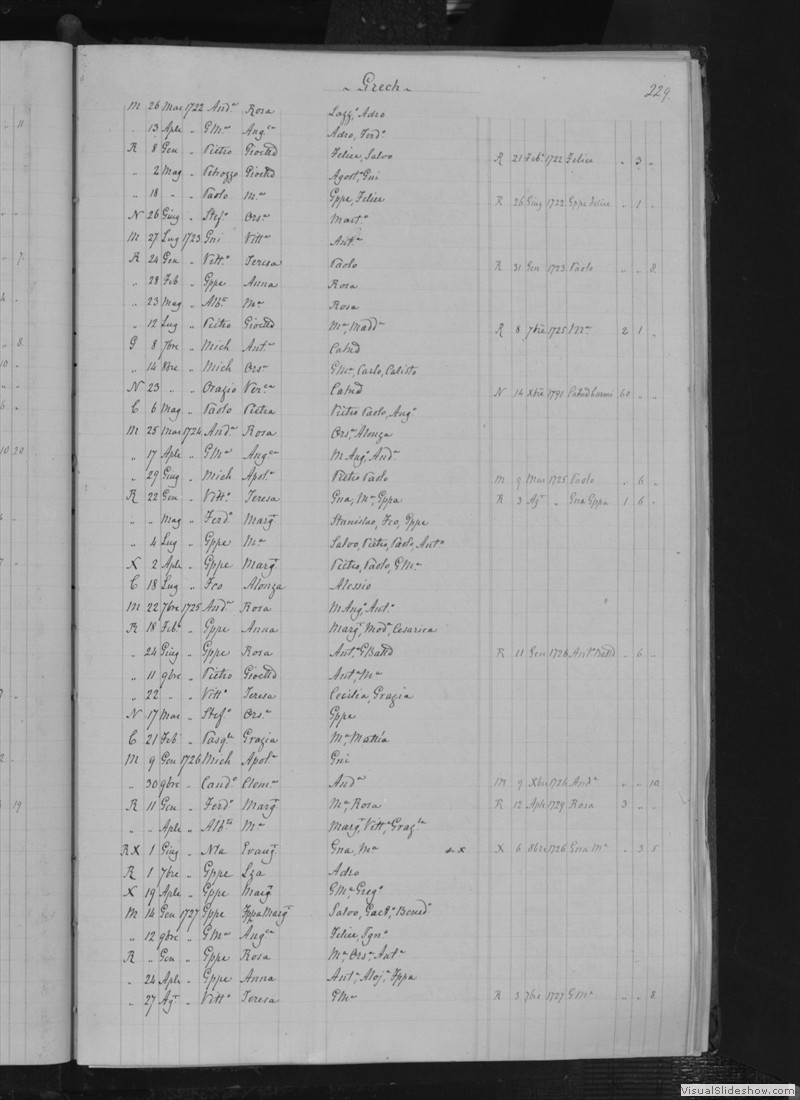 ~ Grech ~
229.
M 26 Mar 1722 And.ª Rosa Lazz.º Adro
" 13 Aple " GM.ª Ang.ca Adro, Ferd.º
R 8 Gen " Pietro Gioetta Felice, Salvo R 21 Feb.º 1722 Felice " 3 "
" 2 Mag " Petrozzo Gioetta Agost.º Gni
" 18 " " Paolo M.ª Gppe, Felice R 26 Giug 1722 Gppe Felice " 1 "
N 26 Giug " Stef.º Ors.ª Mart.º
M 27 Lug 1723 Gni Vitt.ª Ant.ª
R 24 Gen " Vitt.º Teresa Paolo R 31 Gen 1723 Paolo " " 8
" 28 Feb " Gppe Anna Rosa
" 23 Mag " Alb.to M.ª Rosa
" 12 Lug " Pietro Gioetta M.ª, Madd.ª R 8 7bre 1725 M.ª 2 1 "
G 8 7bre " Mich Ant.ª Catnd
" 14 8bre " Mich Ors.ª GM.ª, Carlo, Calisto
N 23 " " Orazio Ver.ca Catnd N 14 Xbre 1791 60 " "
C 6 Mag " Paolo Pietra Pietro Paolo, Ang.º
M 25 Mar 1724 And.ª Rosa Ors.ª, Alonza
" 17 Aple " GM.ª Ang.ca M Ang.º, And.ª
" 29 Giug " Mich Apol.ª Pietro Paolo M 9 Mar 1725 Paolo " 6 "
R 22 Gen " Vitt.º Teresa Gna, M.ª, Gppa R 3 Ag.t " Gna Gppa 1 6 "
" " Mag " Ferd.º Marg.ª Stanislao, Fco, Gppe
" 4 Lug " Gppe M.ª Salvo, Pietro, Paolo, Ant.º
X 2 Aple " Gppe Marg.ª Pietro, Paolo, GM.ª
C 18 Lug " Fco Alonza Alessio
M 22 7bre 1725 And.ª Rosa M Ang.º, Ant.º
R 18 Feb.º " Gppe Anna Marg.ª, Mod.ª, Cesarica
" 24 Giug " Gppe Rosa Ant.º, GBatta R 11 Gen 1726 Ant.º Batta " 6 "
" 11 9bre " Pietro Gioetta Ant.ª, M.ª
" 22 " " Vitt.º Teresa Cecilia, Grazia
N 17 Mar " Stef.º Ors.ª Gppe
C 21 Feb " Pasq.le Grazia M.ª, Mattia
M 9 Gen 1726 Mich Apol.ª Gni
" 30 9bre " Cand.º Clem.ª And.ª M 9 Xbre 1726 And.ª " " 10
R 11 Gen " Ferd.º Marg.ª M.ª, Rosa R 12 Aple 1729 Rosa 3 " "
" " Aple " Alb.to M.ª Marg.ª, Vitt.ª, Graz.la
R X 1 Giug " Nla Evang.ª Gna, M.ª X 6 8bre 1726 Gna M.ª " 3 5
R 1 7bre " Gppe Lza Adro
X 19 Aple " Gppe Marg.ª GM.ª, Greg.º
M 14 Gen 1727 Gppe Fppa Marg.ª Salvo, Gaet.º, Bened.º
" 12 9bre " GM.ª Ang.ca Felice, Ign.º
R " Gen " Gppe Rosa M.ª, Ors.ª, Ant.ª
" 24 Aple " Gppe Anna Ant.ª, Aloj.ª, Fppa
" 27 Ag.t " Vitt.º Teresa GM.ª R 3 7bre 1727 GM.ª " " 8
VisualSlideshow.com